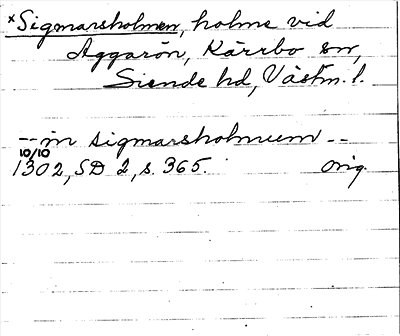 *Sigmarsholmen, holme vid
Aggarön, Kärrbo sn,
Siende hd, Västm. l.
-- in sigmarsholmum --
10/10
1302, SD 2, s. 365. orig.